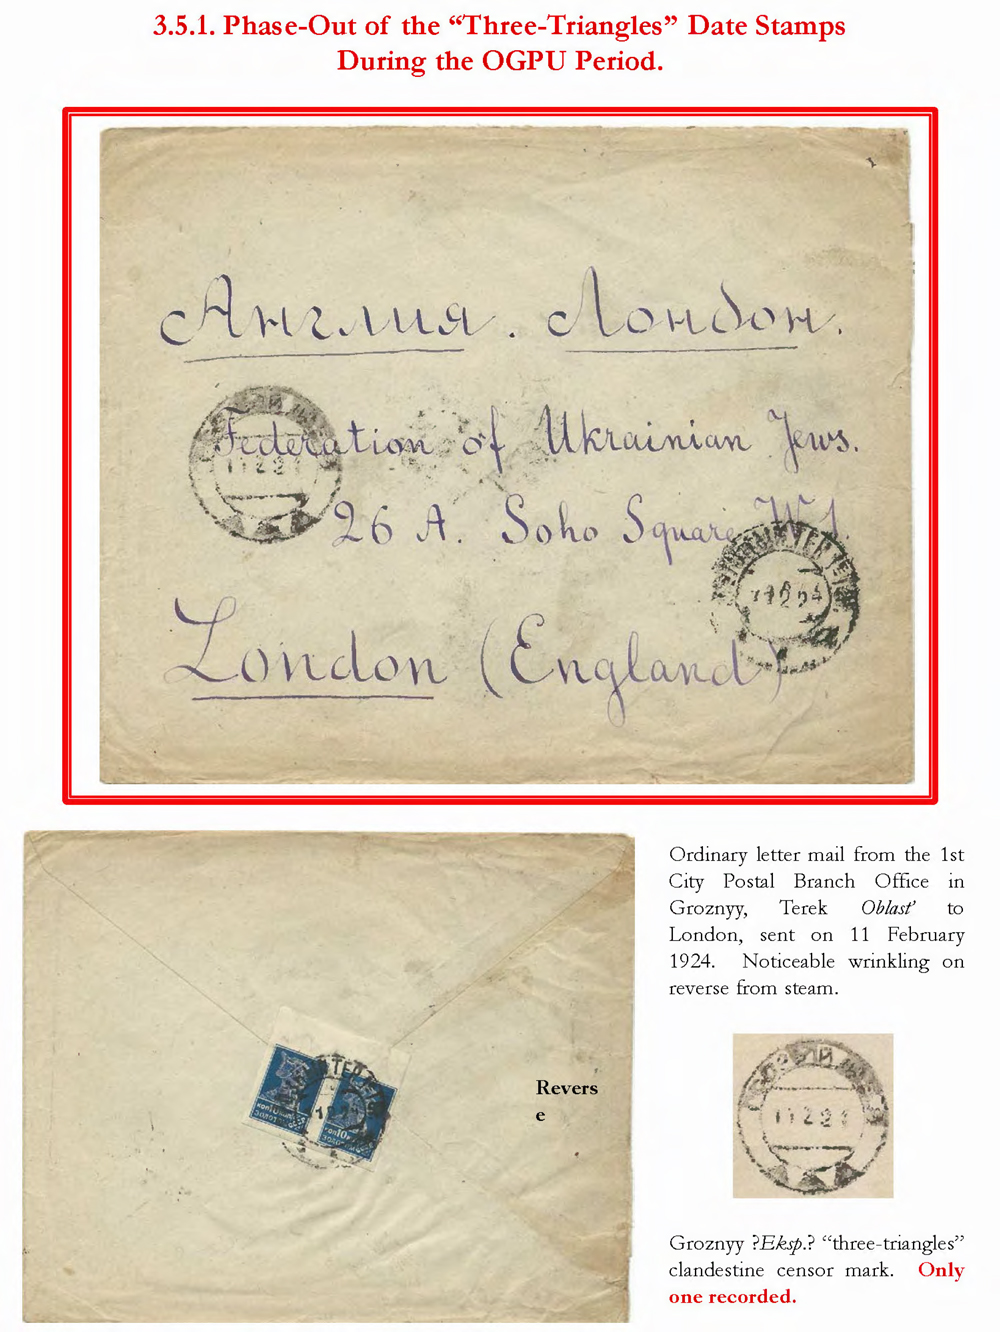 3.5.1. Phase-Out of the “Three-Triangles” Date Stamps
During the OGPU Period.
Англия. Лондон.
Federation of Ukrainian Jews.
26 A. Soho Square W1.
London (England)
11 2 24
Ordinary letter mail from the 1st
City Postal Branch Office in
Groznyy, Terek Oblast’ to
London, sent on 11 February
1924. Noticeable wrinkling on
reverse from steam.
Revers
e
Groznyy ?Eksp.? “three-triangles”
clandestine censor mark. Only
one recorded.